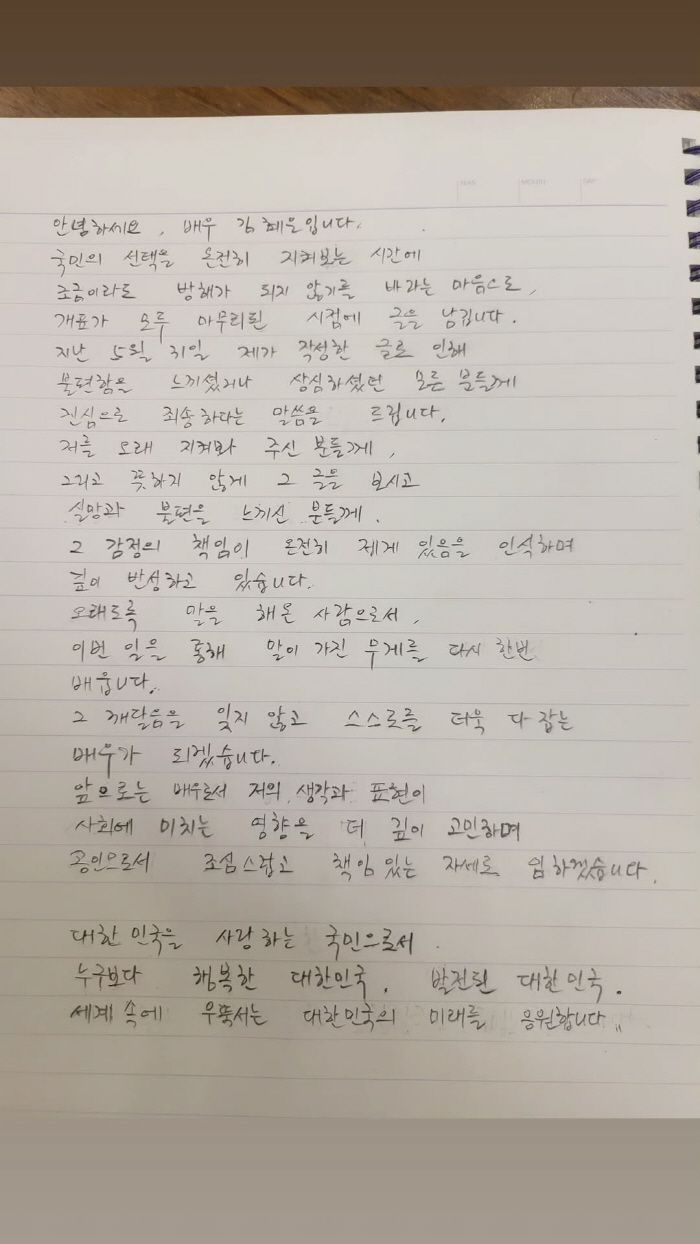 안녕하세요, 배우 김혜은입니다.
국민의 선택을 온전히 지켜보는 시간에
조금이라도 방해가 되지 않기를 바라는 마음으로,
개표가 모두 마무리된 시점에 글을 남깁니다.
지난 5월 31일 제가 작성한 글로 인해
불편함을 느끼셨거나 상심하셨던 모든 분들께
진심으로 죄송하다는 말씀을 드립니다.
저를 오래 지켜봐 주신 분들께,
그리고 뜻하지 않게 그 글을 보시고
실망과 불편을 느끼신 분들께.
그 감정의 책임이 온전히 제게 있음을 인식하며
깊이 반성하고 있습니다.
오래도록 말을 해온 사람으로서,
이번 일을 통해 말이 가진 무게를 다시 한번
배웁니다.
그 깨달음을 잊지 않고 스스로를 더욱 다잡는
배우가 되겠습니다.
앞으로는 배우로서 저의 생각과 표현이
사회에 미치는 영향을 더 깊이 고민하며
공인으로서 조심스럽고 책임 있는 자세로 임하겠습니다.
대한민국을 사랑하는 국민으로서.
누구보다 행복한 대한민국. 발전된 대한민국.
세계 속에 우뚝서는 대한민국의 미래를 응원합니다..